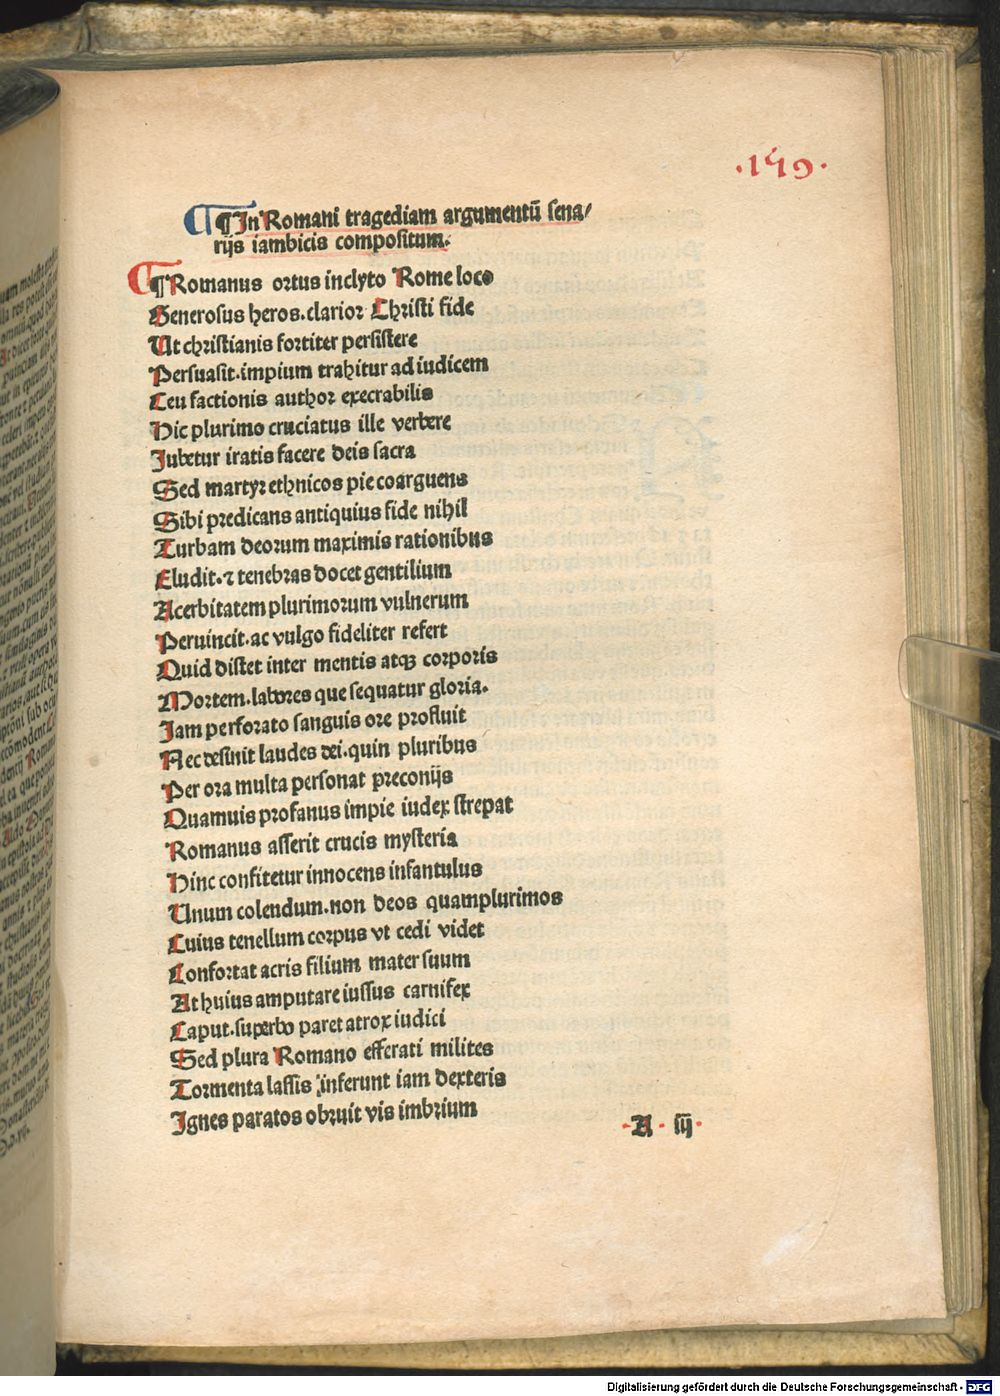 ·159·
¶In Romani tragediam argumentū sena/
rijs iambicis compositum.
¶Romanus ortus inclyto Rome loco
Generosus heros.clarior Christi fide
Ut christianis fortiter persistere
Persuasit.impium trahitur ad iudicem
Ceu factionis author execrabilis
Hic plurimo cruciatus ille verbere
Iubetur iratis facere deis sacra
Sed martyr ethnicos pie coarguens
Sibi predicans antiquius fide nihil
Turbam deorum maximis rationibus
Eludit.⁊ tenebras docet gentilium
Acerbitatem plurimorum vulnerum
Peruincit.ac vulgo fideliter refert
Quid distet inter mentis atqꝫ corporis
Mortem.labores que sequatur gloria.
Iam perforato sanguis ore profluit
Nec desinit laudes dei.quin pluribus
Per ora multa personat preconijs
Quamuis profanus impie iudex strepat
Romanus asserit crucis mysteria
Hinc confitetur innocens infantulus
Unum colendum.non deos quamplurimos
Cuius tenellum corpus vt cedi videt
Confortat acris filium mater suum
At huius amputare iussus carnifex
Caput.superbo paret atrox iudici
Sed plura Romano efferati milites
Tormenta lassis inferunt iam dexteris
Ignes paratos obruit vis imbrium
·A· iij·
Digitalisierung gefördert durch die Deutsche Forschungsgemeinschaft - DFG